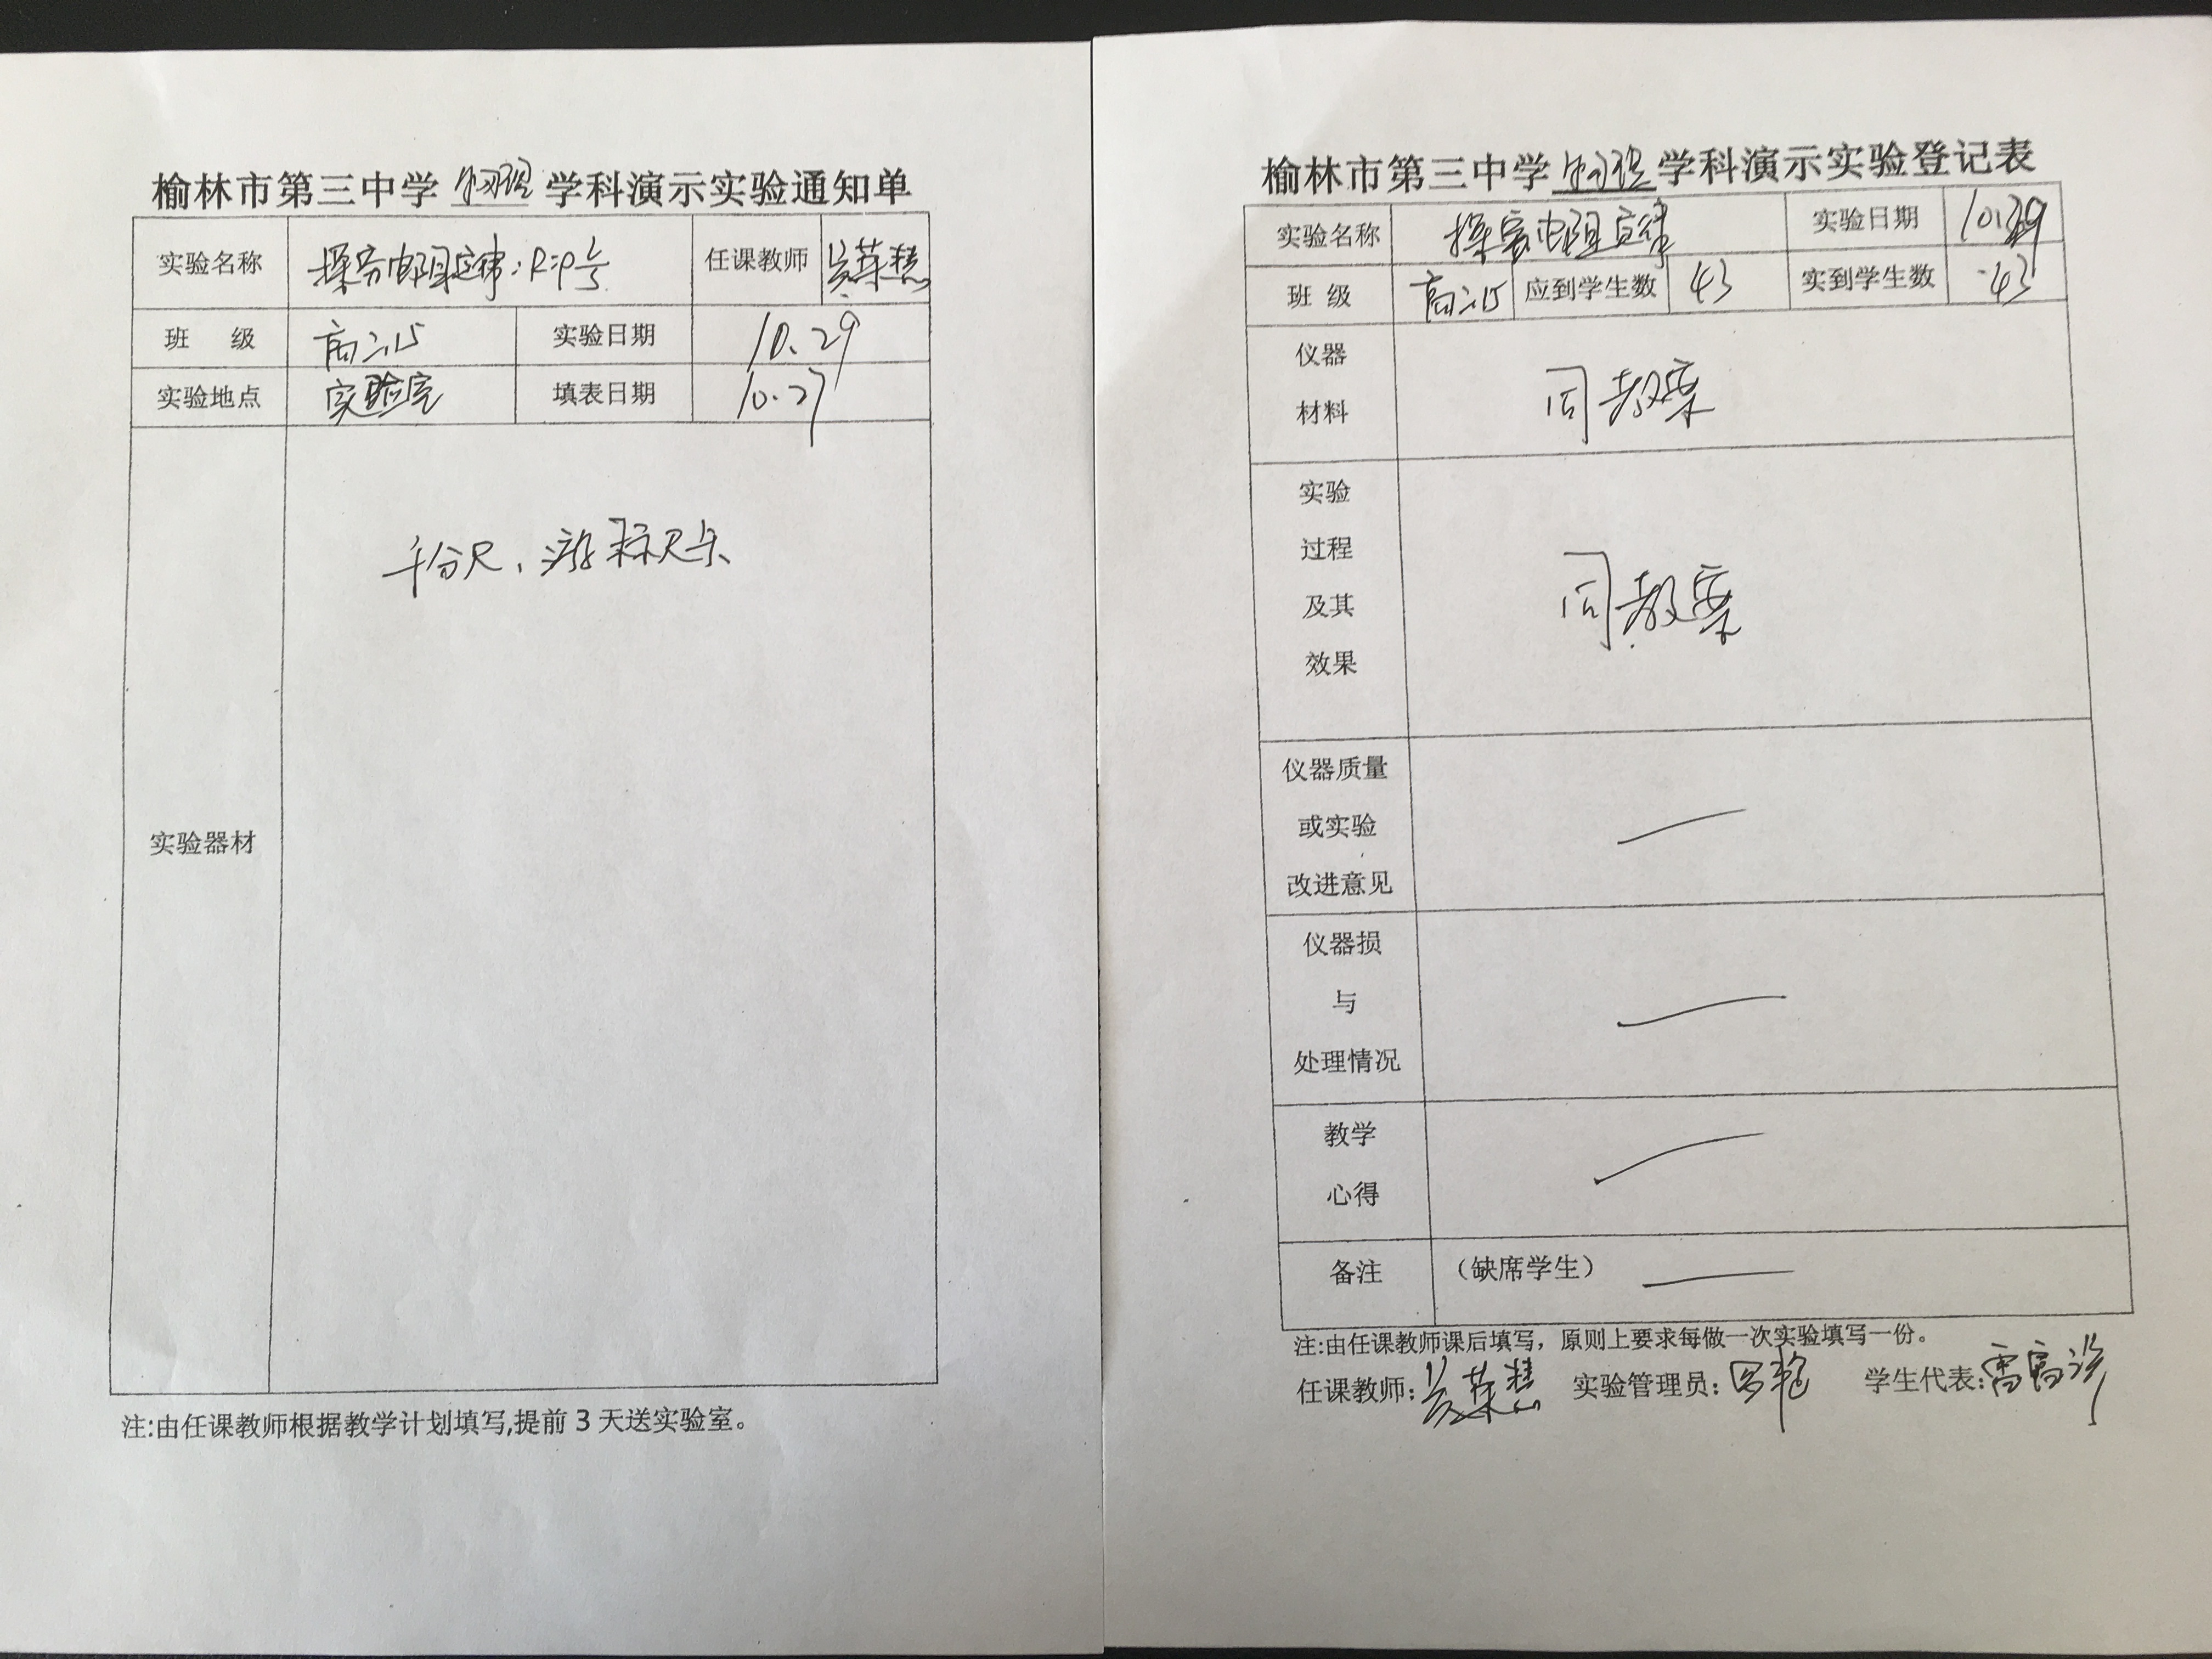 榆林市第三中学 物理 学科演示实验通知单
实验名称 探究电阻定律:R=ρL/S 任课教师
班 级 高二.15 实验日期 10.29
实验地点 实验室 填表日期 10.27
实验器材 千分尺、游标尺卡
注:由任课教师根据教学计划填写,提前3天送实验室。
榆林市第三中学 物理 学科演示实验登记表
实验名称 探究电阻定律 实验日期 10.29
班 级 高二.15 应到学生数 43 实到学生数 43
仪器
材料
同教案
实验
过程
及其
效果
同教案
仪器质量
或实验
改进意见
仪器损
与
处理情况
教学
心得
备注 (缺席学生)
注:由任课教师课后填写，原则上要求每做一次实验填写一份。
任课教师: 实验管理员: 学生代表: